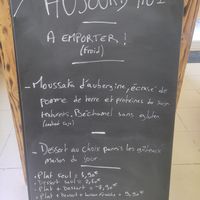 AUJOURD'HUI
A EMPORTER !
(froid)
- Moussaka d'aubergine, écrasé de
pomme de terre et protéines de soja
texturées. Béchamel sans gluten
(contient soja)
- Dessert au choix parmis les gâteaux
maison du jour
- Plat seul =
- Dessert seul =
- Plat + Dessert =
- Plat + Dessert + boisson fraîche = 9,90€